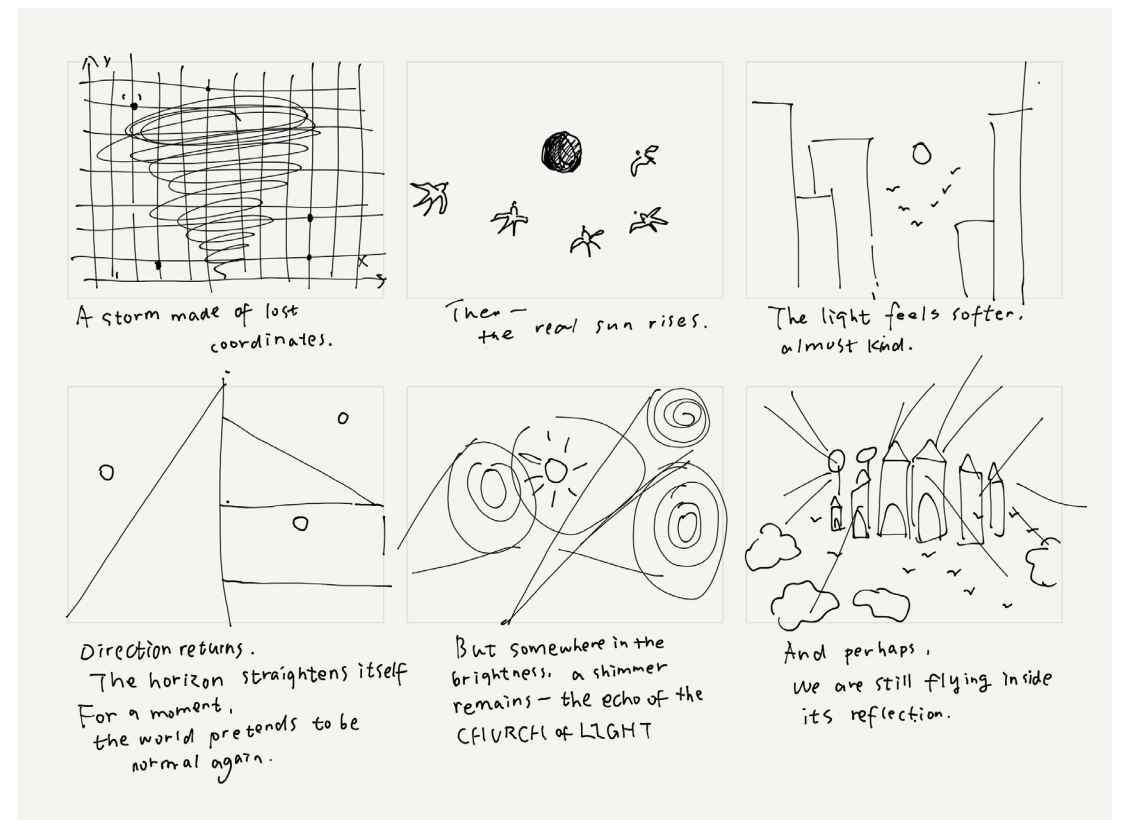 y
x
A storm made of lost
coordinates.
Then —
the real sun rises.
The light feels softer,
almost kind.
Direction returns.
The horizon straightens itself
For a moment,
the world pretends to be
normal again.
But somewhere in the
brightness, a shimmer
remains — the echo of the
CHURCH of LIGHT
And perhaps,
we are still flying inside
its reflection.